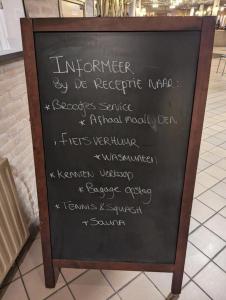 INFORMEER
BIJ DE RECEPTIE NAAR:
* Broodjes Service
* Afhaalmaaltijden
* FIETSVERHUUR
* WASMUNTEN
* KRANTEN VERKOOP
* Bagage opslag
* TENNIS & SQUASH
* SAUNA